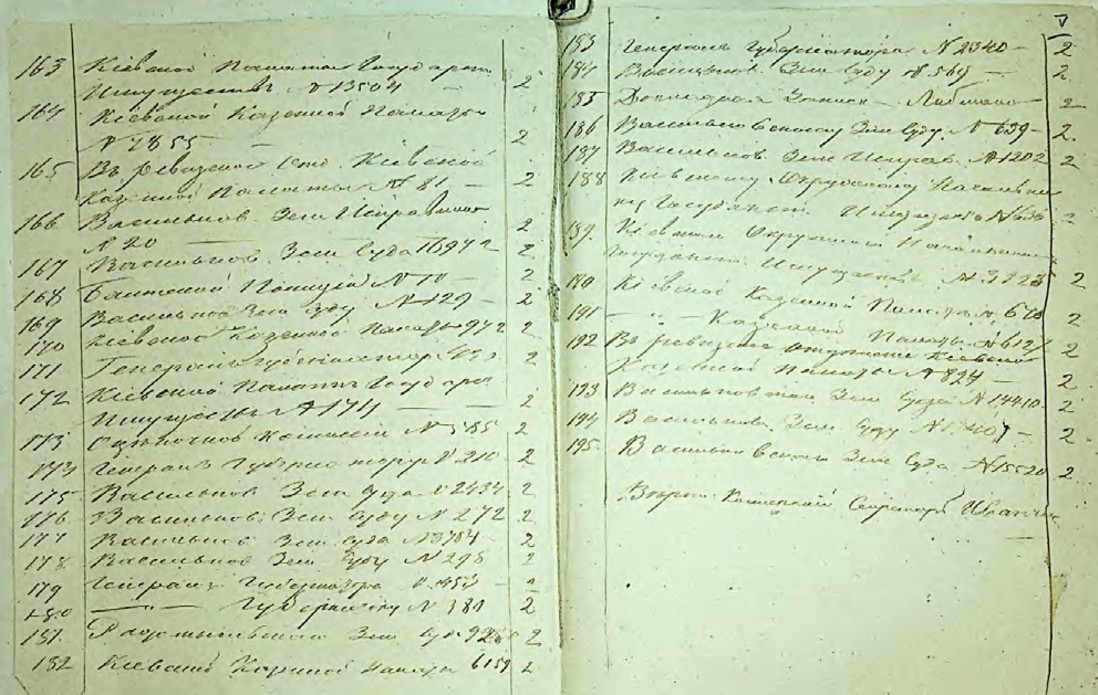 163 Кіевской Палаты Государст.
Имуществъ № 13504 2
164 Кіевской Казенной Палаты
№ 2855 2
165 Въ ревизское Кіевской
Казенной Палаты № 81 — 2
166 Васильков. Зем. Исправнику
№ 20 — 2
167 Васильков. Зем. Суда 2
168 Полиціи № 2
169 Васильков. Зем. Суду № 129 — 2
170 Кіевской Казенной Палаты 972 2
171 Генералъ Губернатора 2
172 Кіевской Палаты Государст.
Имуществъ № 1711 — 2
173 Оцѣночной Комиссіи № 2
174 Генералъ Губернатору № 210 2
175 Васильков. Зем. Суда № 2434 2
176 Васильков. Зем. Суду № 272 2
177 Васильков. Зем. Суда № 3784 — 2
178 Васильков. Зем. Суду № 298 2
179 Генералъ Губернатора — 2
180 — „ — Губернатору № 380 2
181 Радомысльскаго Зем. Суда 2
182 Кіевской Казенной Палаты 6159 2
V
183 Генералъ Губернатора № 2340 — 2
184 Васильков. Зем. Суду № 569 — 2
185 Докладная Записка — 2
186 Васильковскому Зем. Суду № 659 — 2
187 Васильков. Зем. Исправ. № 1202 2
188 Кіевскому Окружному Начальни
ку Государст. Имуществъ № 2
189 Кіевского Окружного Начальника
Государст. Имуществъ № 2
190 Кіевской Казенной Палаты № 2
191 — „ — Казенной Палаты № 612 2
192 Въ ревизское отдѣленіе Кіевской
Казенной Палаты № 824 — 2
193 Васильковскаго Зем. Суда № 14410 2
194 Васильков. Зем. Суду № — 2
195 Васильковскаго Зем. Суда № 15520 2
Секретарь